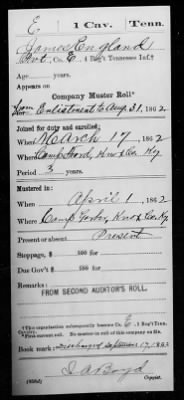 E | 1 Cav. | Tenn.
James England
Pvt, Co. E, 4 Reg't Tennessee Inf.†
Age years.
Appears on
Company Muster Roll*
from Enlistment to Aug. 31, 1862
Joined for duty and enrolled:
When March 17, 1862
Where Camp Ford, Knox Co. Ky
Period 3 years.
Mustered in:
When April 1, 1862
Where Camp Knox Co. Ky
Present or absent Present
Stoppage, $ 100 for
Due Gov't $ 100 for
Remarks:
FROM SECOND AUDITOR'S ROLL.
†This organization subsequently became Co. E, 1 Reg't Tenn. Cav.
*First current roll. No muster-in roll of this company on file.
Book mark: Discharged September 17, 1862
Copyist.